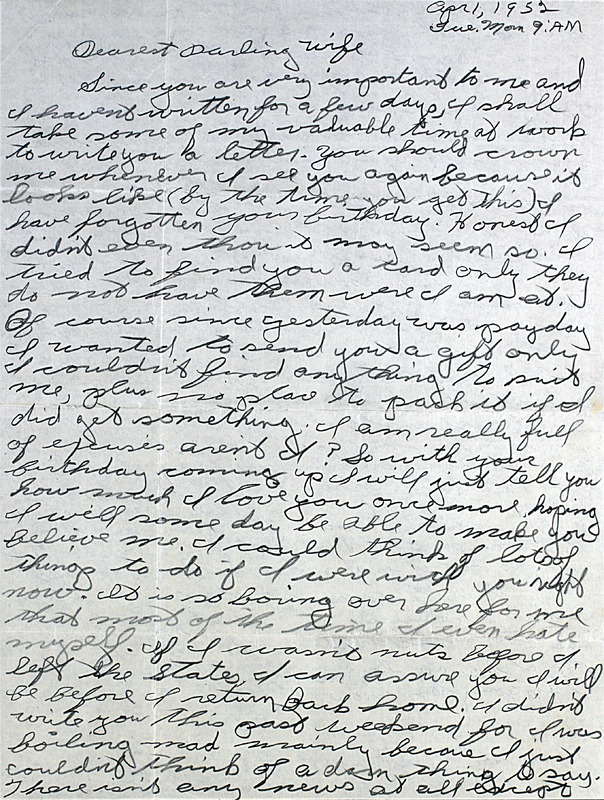 Apr 1, 1952
Tue. Morn 9:AM
Dearest Darling Wife
Since you are very important to me and
I havent written for a few days, I shall
take some of my valuable time at work
to write you a letter. You should crown
me whenever I see you again because it
looks like (by the time you get this) I
have forgotten your birthday. Honest I
didn't even thou it may seem so. I
tried to find you a card only they
do not have them were I am at.
Of course since yesterday was payday
I wanted to send you a gift only
I couldn't find anything to suit
me, plus no place to pack it if I
did get something. I am really full
of ejcuses arent I? So with your
birthday coming up I will just tell you
how much I love you once more, hoping
I will some day be able to make you
believe me. I could think of lots of
things to do if I were with you right
now. It is so boring over here for me
that most of the time I even hate
myself. If I wasn't nuts before I
left the States, I can assure you I will
be before I return back home. I didn't
write you this past weekend for I was
boiling mad mainly becaue I just
couldn't think of a damn thing to say.
There isn't any news at all except